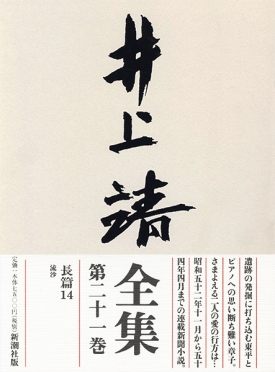 井上靖
遺跡の発掘に打ち込む東平と
ピアノへの思い断ち難い章子。
さまよえる二人の愛の行方は…
昭和五十二年十一月から五十
四年四月までの連載新聞小説。
全集
第二十一巻
長篇14
流沙
新潮社版